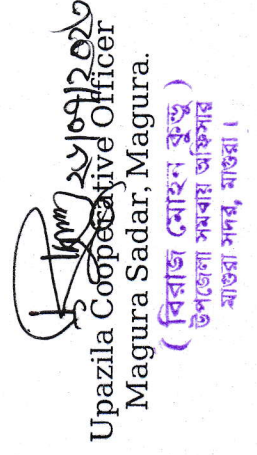 ২৮/০৭/২০২০
Upazila Cooperative Officer
Magura Sadar, Magura.
( বিরাজ মোহন কুন্ডু )
উপজেলা সমবায় অফিসার
মাগুরা সদর, মাগুরা ।